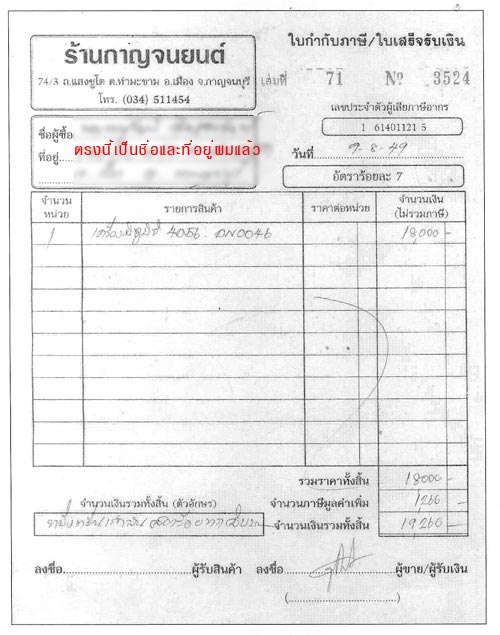 ร้านกาญจนยนต์
74/3 ถ.แสงชูโต ต.ท่ามะขาม อ.เมือง จ.กาญจนบุรี
โทร. (034) 511454
ใบกำกับภาษี/ใบเสร็จรับเงิน
เล่มที่ 71 No 3524
เลขประจำตัวผู้เสียภาษีอากร
1 61401121 5
ชื่อผู้ซื้อ
ที่อยู่..... ตรงนี้เป็นชื่อและที่อยู่ผมแล้ว
วันที่ 9-8-49
อัตราร้อยละ 7
จำนวนหน่วย รายการสินค้า ราคาต่อหน่วย จำนวนเงิน (ไม่รวมภาษี)
1 4056 DN0046 18,000 -
รวมราคาทั้งสิ้น 18000 -
จำนวนเงินรวมทั้งสิ้น (ตัวอักษร) จำนวนภาษีมูลค่าเพิ่ม 1260 -
จำนวนเงินรวมทั้งสิ้น 19,260 -
ลงชื่อ ผู้รับสินค้า ลงชื่อ ผู้ขาย/ผู้รับเงิน